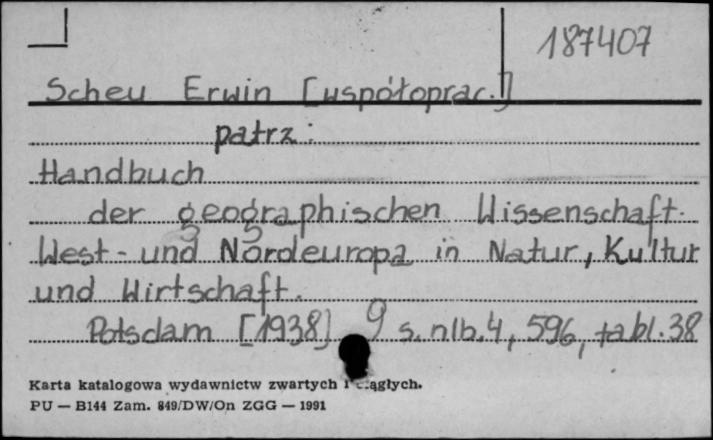 187407
Scheu Erwin [współoprac.]
patrz:
Handbuch
der geographischen Wissenschaft.
West- und Nordeuropa in Natur, Kultur
und Wirtschaft.
Potsdam [1938] 9 s. nlb. 4, 596, tabl. 38
Karta katalogowa wydawnictw zwartych i ciągłych.
PU — B144 Zam. 849/DW/On ZGG — 1991